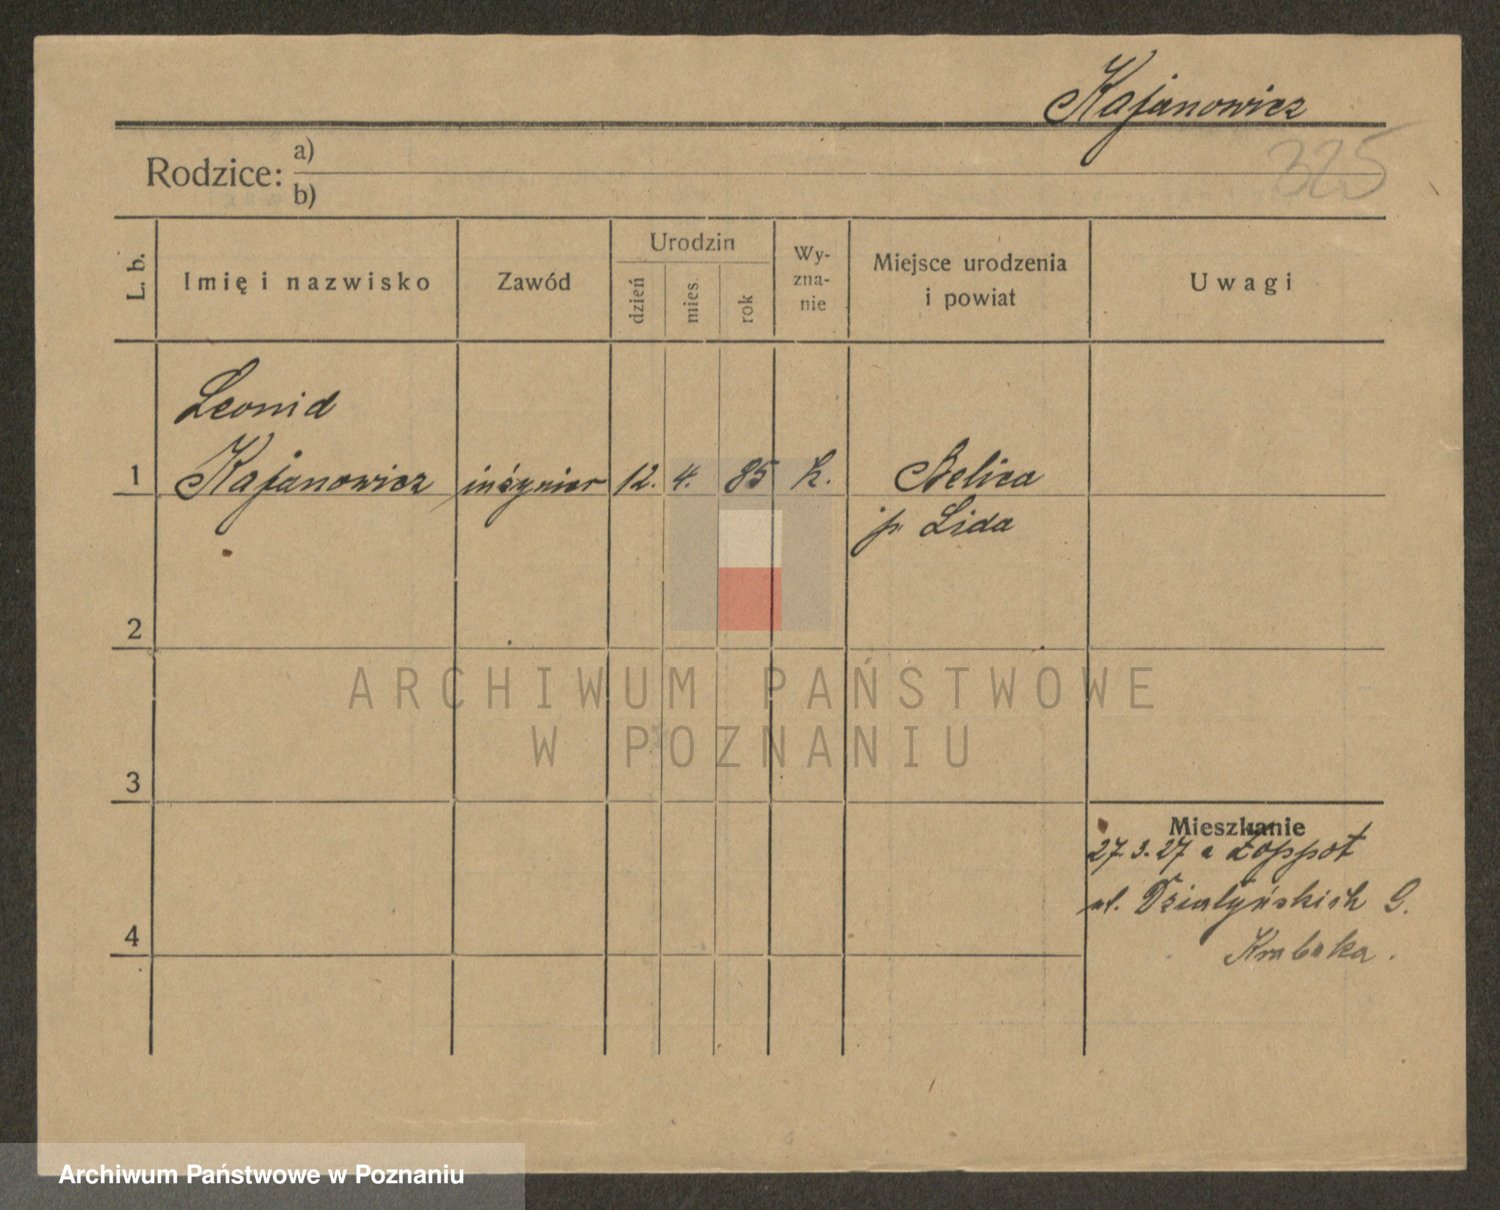 Kajanowicz
325
Rodzice: a)
b)
L. b. Imię i nazwisko Zawód Urodzin dzień mies. rok Wy-zna-nie Miejsce urodzenia i powiat Uwagi
Leonid
1 Kajanowicz inżynier 12. 4. 85 k. Belica
p. Lida
2
ARCHIWUM PAŃSTWOWE
W POZNANIU
3
Mieszkanie
27.3.27 a Zoppot
ul. Działyńskich 9.
4
Archiwum Państwowe w Poznaniu